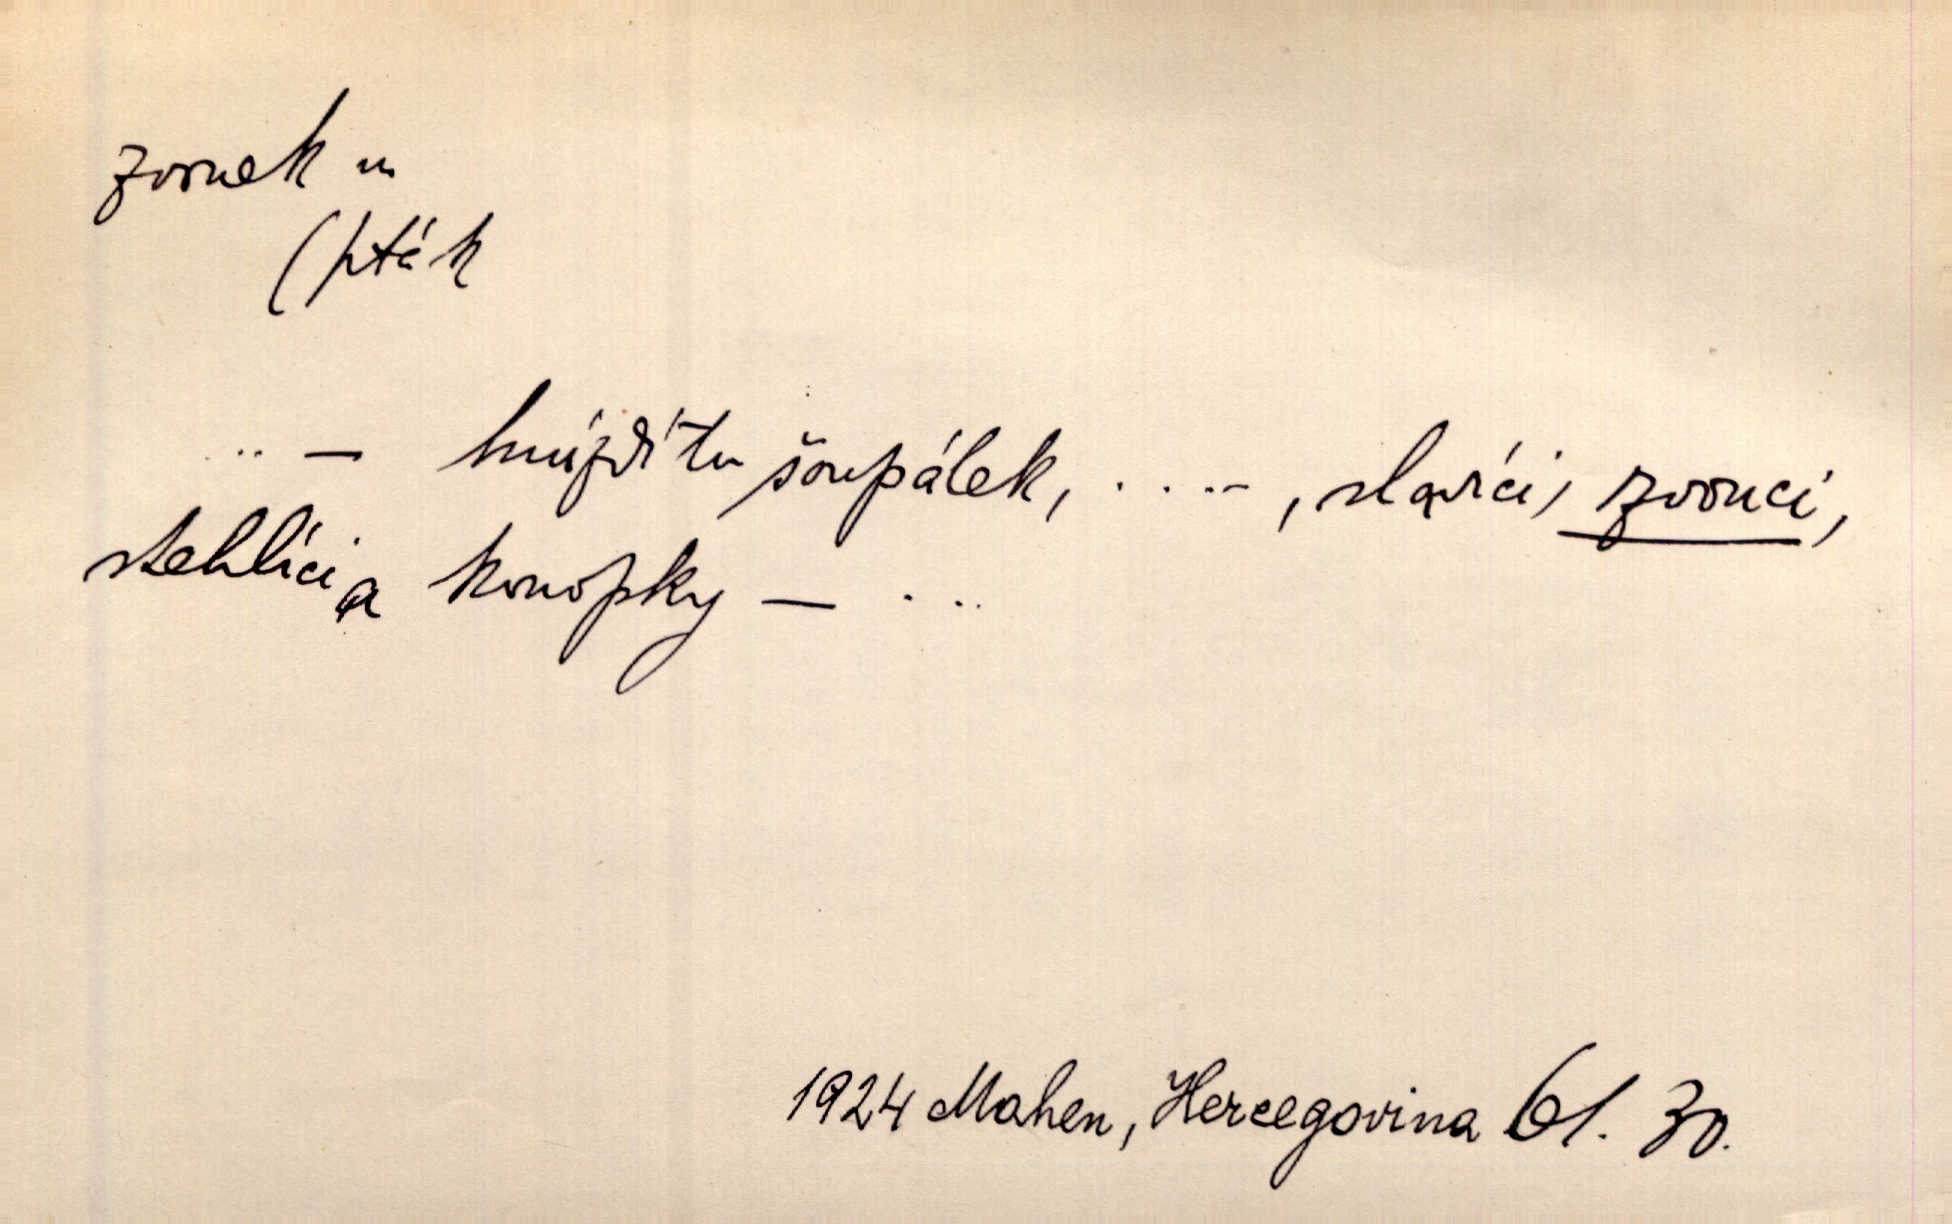 zvonek m
(pták
... — hnízdí tu šoupálek, ...., slavíci, zvonci,
stehlíci a konopky — ...
1924 Mahen, Hercegovina 61. 30.